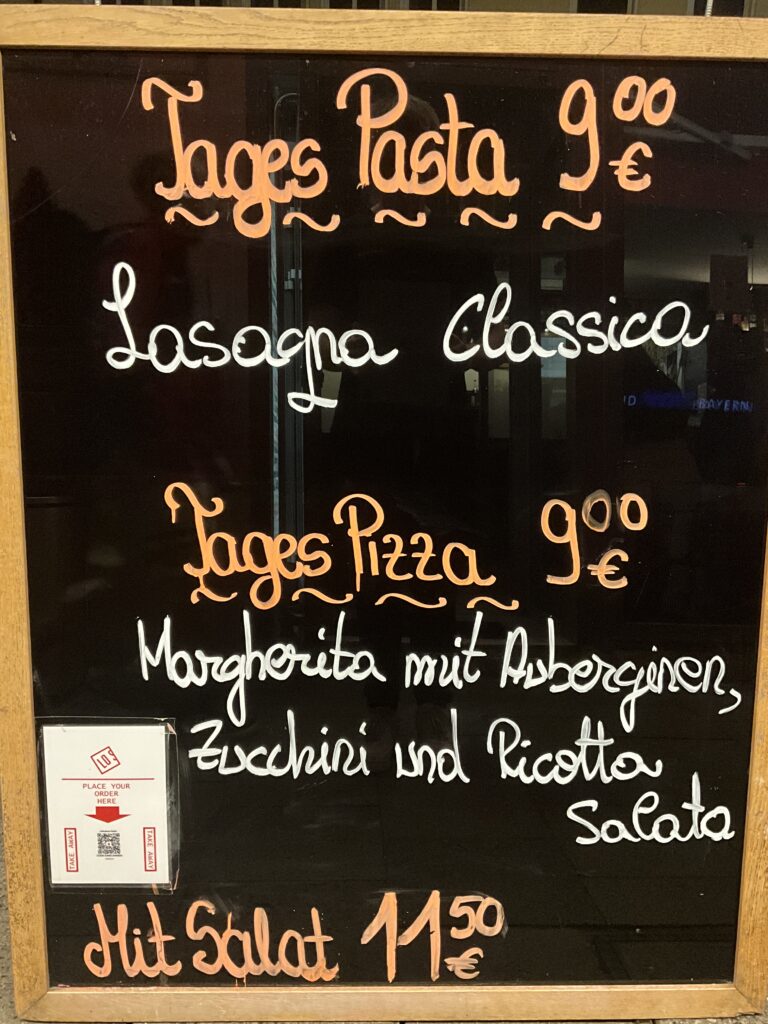 Tages Pasta 9⁰⁰ €
Lasagna Classica
Tages Pizza 9⁰⁰ €
Margherita mit Auberginen,
Zucchini und Ricotta
Salata
PLACE YOUR
ORDER
HERE
TAKE AWAY
TAKE AWAY
Mit Salat 11⁵⁰ €
BAYERN